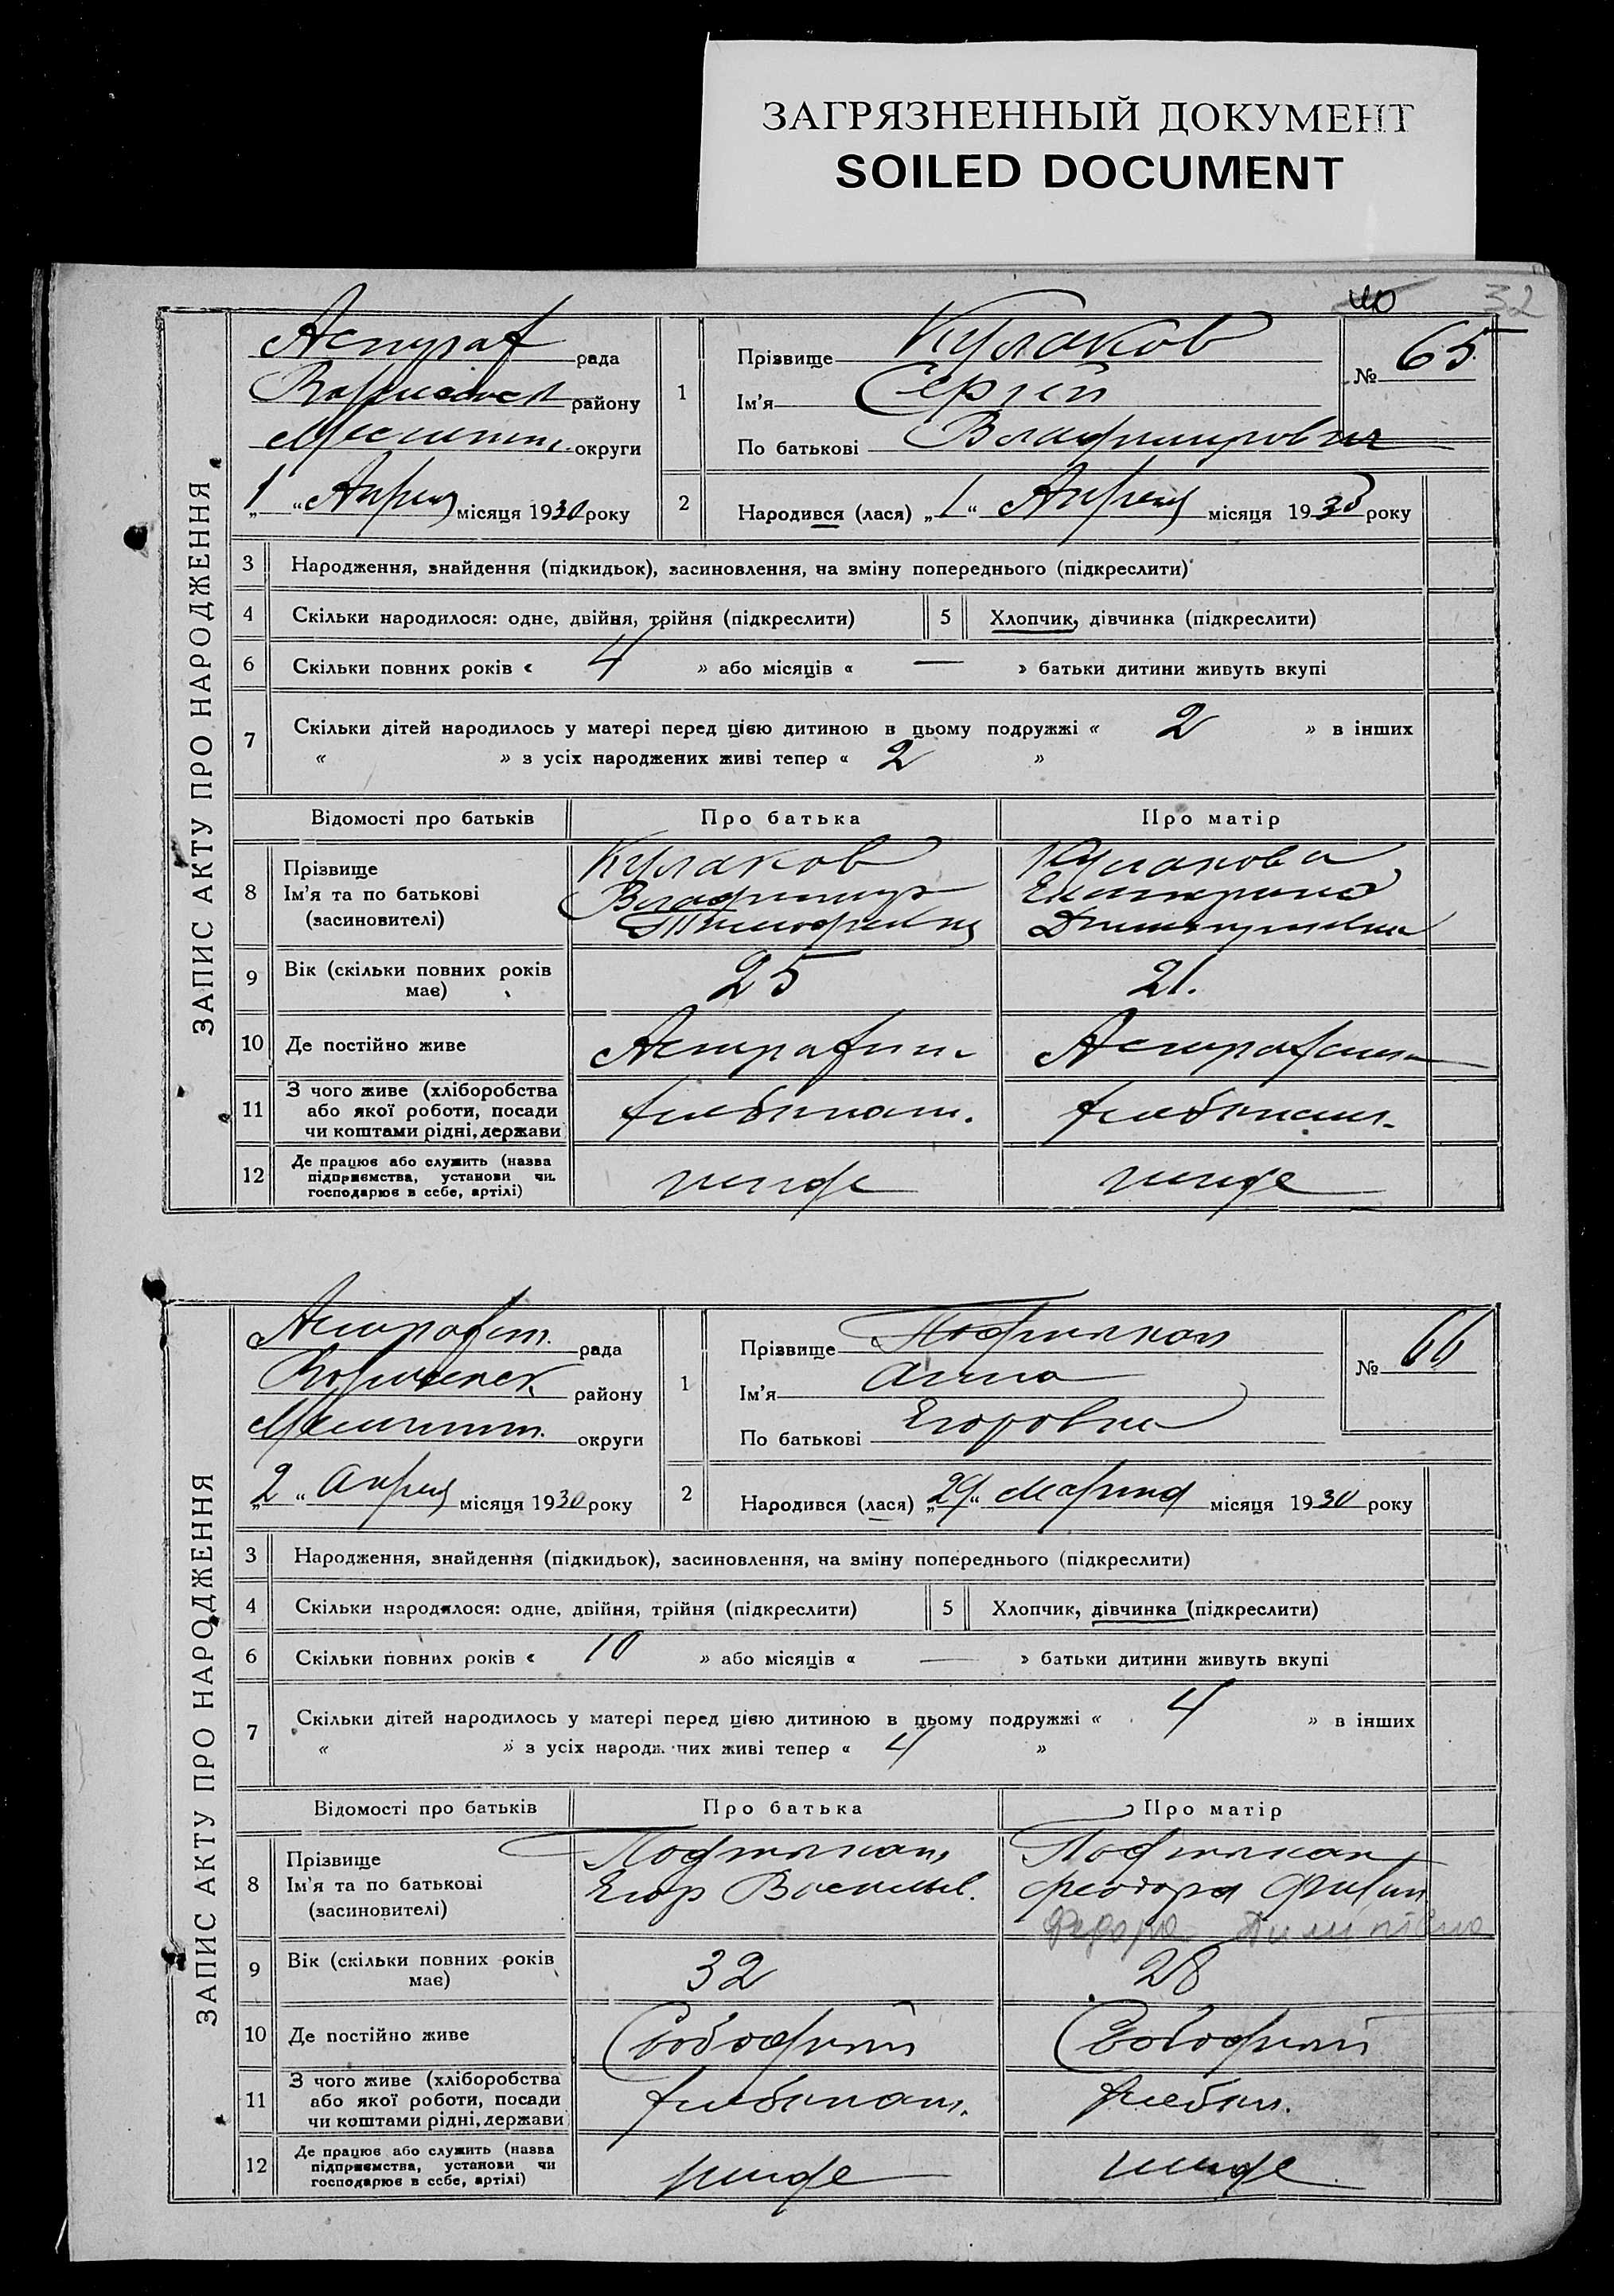 ЗАГРЯЗНЕННЫЙ ДОКУМЕНТ
SOILED DOCUMENT
32
ЗАПИС АКТУ ПРО НАРОДЖЕННЯ
рада
району
округи
„1“ Апреля місяця 1930 року
1
Прізвище Кулаков
Ім'я Сергей
По батькові Владимирович
№ 65
2
Народився (лася) „1“ Апреля місяця 1930 року
3 Народження, знайдення (підкидьок), засиновлення, на зміну попереднього (підкреслити)
4 Скільки народилося: одне, двійня, трійня (підкреслити)
5 Хлопчик, дівчинка (підкреслити)
6 Скільки повних років « 4 » або місяців « — » батьки дитини живуть вкупі
7 Скільки дітей народилось у матері перед цією дитиною в цьому подружжі « 2 » в інших
« » з усіх народжених живі тепер « 2 »
Відомості про батьків Про батька Про матір
8 Прізвище
Ім'я та по батькові
(засиновителі)
Кулаков
Владимир
Кулакова
Екатерина
9 Вік (скільки повних років
має)
25 21.
10 Де постійно живе
11 З чого живе (хліборобства
або якої роботи, посади
чи коштами рідні, держави
хлебопаш. хлебопаш.
12 Де працює або служить (назва
підприємства, установи чи
господарює в себе, артілі)
нигде нигде
ЗАПИС АКТУ ПРО НАРОДЖЕННЯ
рада
району
округи
„2“ Апреля місяця 1930 року
1
Прізвище
Ім'я Анна
По батькові Егоровна
№ 66
2
Народився (лася) „29“ Марта місяця 1930 року
3 Народження, знайдення (підкидьок), засиновлення, на зміну попереднього (підкреслити)
4 Скільки народилося: одне, двійня, трійня (підкреслити)
5 Хлопчик, дівчинка (підкреслити)
6 Скільки повних років « 10 » або місяців « — » батьки дитини живуть вкупі
7 Скільки дітей народилось у матері перед цією дитиною в цьому подружжі « 4 » в інших
« » з усіх народж них живі тепер « 4 »
Відомості про батьків Про батька Про матір
8 Прізвище
Ім'я та по батькові
(засиновителі)
Егор Васильев.
Феодора Филип
9 Вік (скільки повних років
має)
32 28
10 Де постійно живе
Свободный Свободный
11 З чого живе (хліборобства
або якої роботи, посади
чи коштами рідні, держави
хлебопаш. хлебоп.
12 Де працює або служить (назва
підприємства, установи чи
господарює в себе, артілі)
нигде нигде